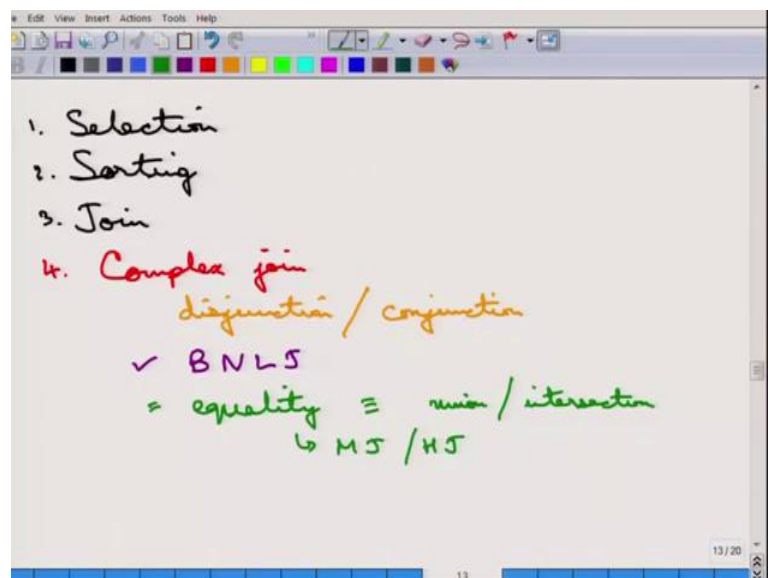 Edit View Insert Actions Tools Help
1. Selection
2. Sorting
3. Join
4. Complex join
disjunction / conjunction
✓ BNLJ
= equality ≡ union / intersection
↳ MJ / HJ
13 / 20
13